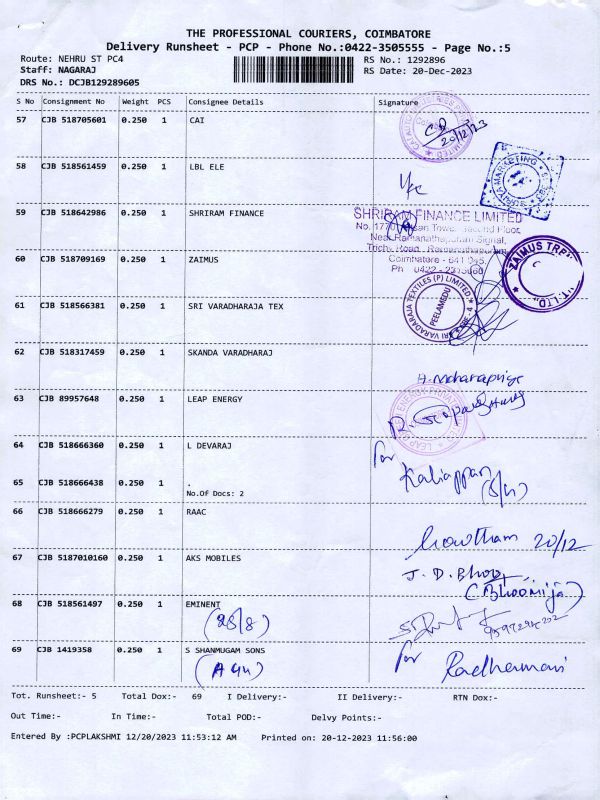 THE PROFESSIONAL COURIERS, COIMBATORE
Delivery Runsheet - PCP - Phone No.:0422-3505555 - Page No.:5
Route: NEHRU ST PC4 RS No.: 1292896
Staff: NAGARAJ RS Date: 20-Dec-2023
DRS No.: DCJB129289605
S No Consignment No Weight PCS Consignee Details Signature
57 CJB 518705601 0.250 1 CAI
20/12/23
58 CJB 518561459 0.250 1 LBL ELE
59 CJB 518642986 0.250 1 SHRIRAM FINANCE
SHRIRAM FINANCE LIMITED
Second Floor,
Near Ramanathapuram Signal,
Coimbatore - 641 045.
60 CJB 518709169 0.250 1 ZAIMUS
61 CJB 518566381 0.250 1 SRI VARADHARAJA TEX
SRI VARADARAJA TEXTILES (P) LIMITED
PEELAMEDU
62 CJB 518317459 0.250 1 SKANDA VARADHARAJ
63 CJB 89957648 0.250 1 LEAP ENERGY
64 CJB 518666360 0.250 1 L DEVARAJ
for Kaliappan
65 CJB 518666438 0.250 1 .
No.Of Docs: 2
66 CJB 518666279 0.250 1 RAAC
Gowtham 20/12
67 CJB 5187010160 0.250 1 AKS MOBILES
J. D. Bhoo
(Bhoomija)
68 CJB 518561497 0.250 1 EMINENT
69 CJB 1419358 0.250 1 S SHANMUGAM SONS
for Radhamani
Tot. Runsheet:- 5 Total Dox:- 69 I Delivery:- II Delivery:- RTN Dox:-
Out Time:- In Time:- Total POD:- Delvy Points:-
Entered By :PCPLAKSHMI 12/20/2023 11:53:12 AM Printed on: 20-12-2023 11:56:00